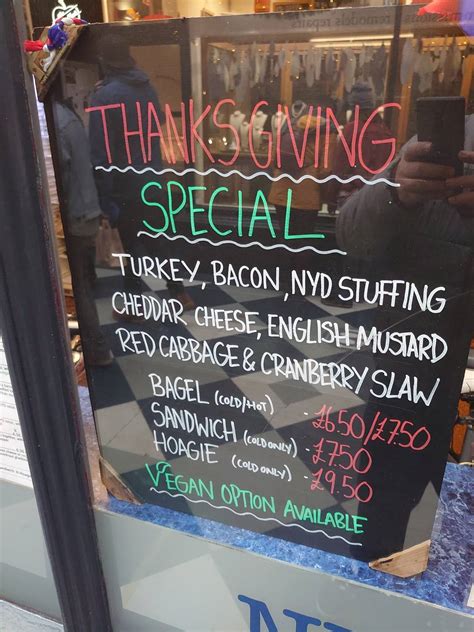 missions, remodels repairs
THANKSGIVING
SPECIAL
TURKEY, BACON, NYD STUFFING
CHEDDAR CHEESE, ENGLISH MUSTARD
RED CABBAGE & CRANBERRY SLAW
BAGEL (COLD/HOT) - £6.50/£7.50
SANDWICH (COLD ONLY) - £7.50
HOAGIE (COLD ONLY) - £9.50
VEGAN OPTION AVAILABLE